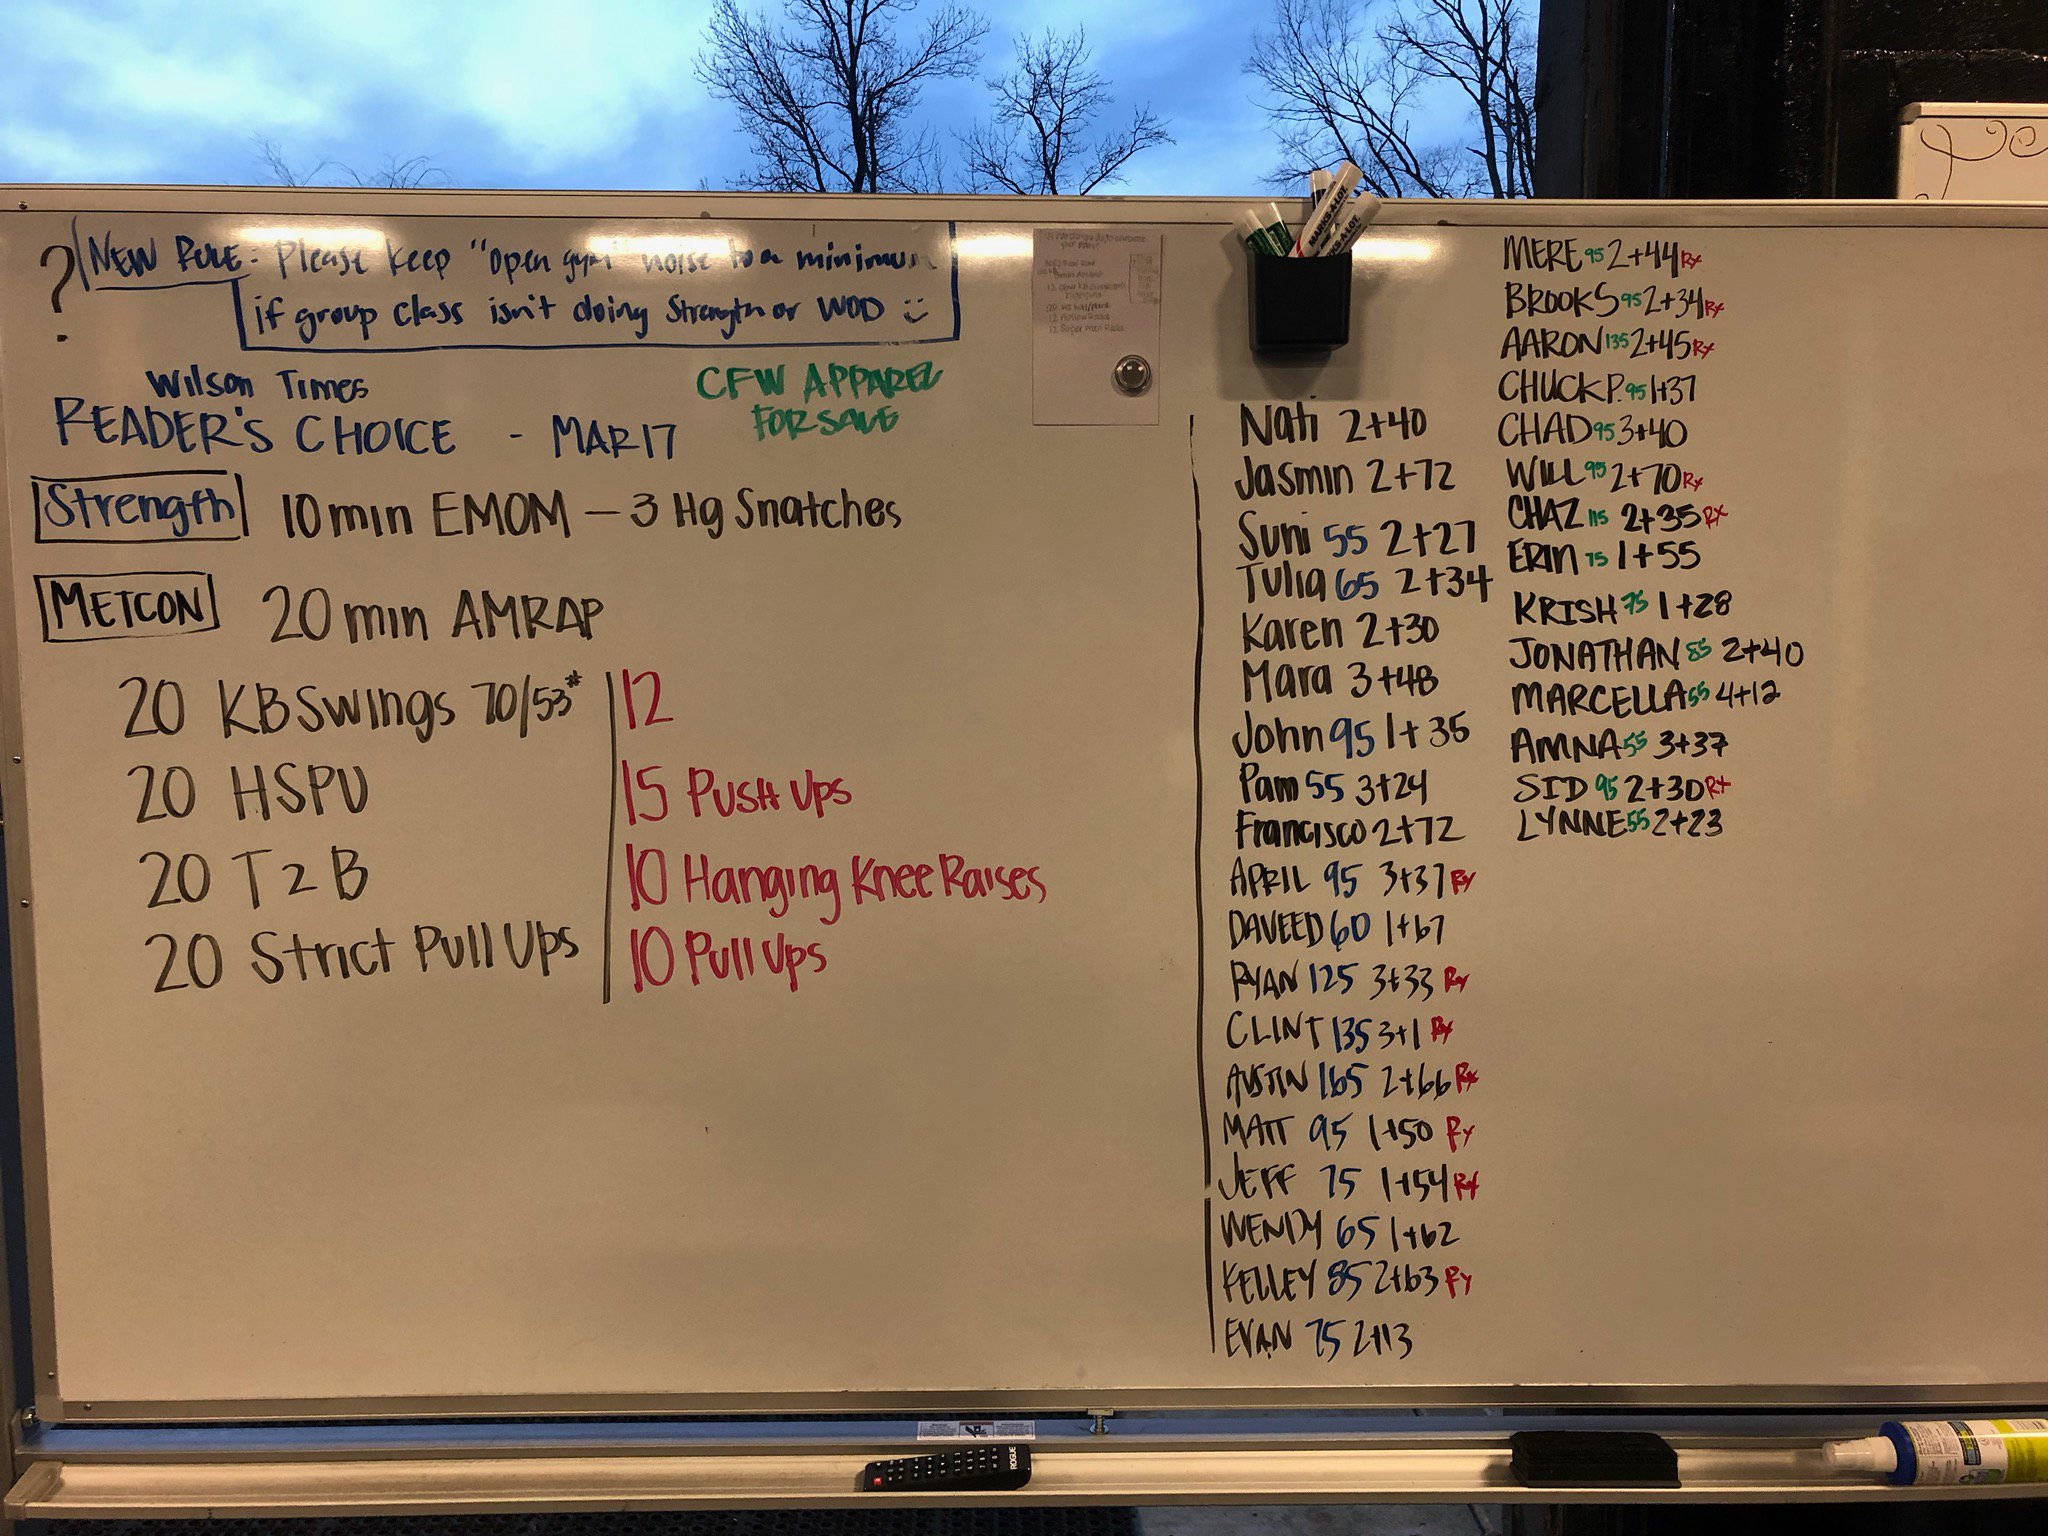 ?
NEW RULE: Please keep "open gym" noise to a minimum
if group class isn't doing Strength or WOD
Wilson Times
READER'S CHOICE - MAR 17
CFW APPAREL
FOR SALE
Strength 10 min EMOM - 3 Hg Snatches
METCON 20 min AMRAP
20 KB Swings 70/53# 12
20 HSPU 15 Push Ups
20 T2B 10 Hanging Knee Raises
20 Strict Pull Ups 10 Pull Ups
12 Hollow Rocks
12 Super man Rocks
MARKS-A-LOT
Nati 2+40
Jasmin 2+72
Suni 55 2+27
Tulia 65 2+34
Karen 2+30
Mara 3+48
John 95 1+35
Pam 55 3+24
Francisco 2+72
APRIL 95 3+37 Rx
DAVEED 60 1+67
RYAN 125 3+33 Rx
CLINT 135 3+1 Rx
AUSTIN 165 2+66 Rx
MATT 95 1+50 Rx
JEFF 75 1+54 Rx
WENDY 65 1+62
KELLEY 85 2+63 Rx
EVAN 75 2+13
MERE 95 2+44 Rx
BROOKS 95 2+34 Rx
AARON 135 2+45 Rx
CHUCK P. 95 1+37
CHAD 95 3+40
WILL 95 2+70 Rx
CHAZ 115 2+35 Rx
ERIN 75 1+55
KRISH 75 1+28
JONATHAN 85 2+40
MARCELLA 55 4+12
AMNA 55 3+37
SID 95 2+30 Rx
LYNNE 55 2+23
ROGUE